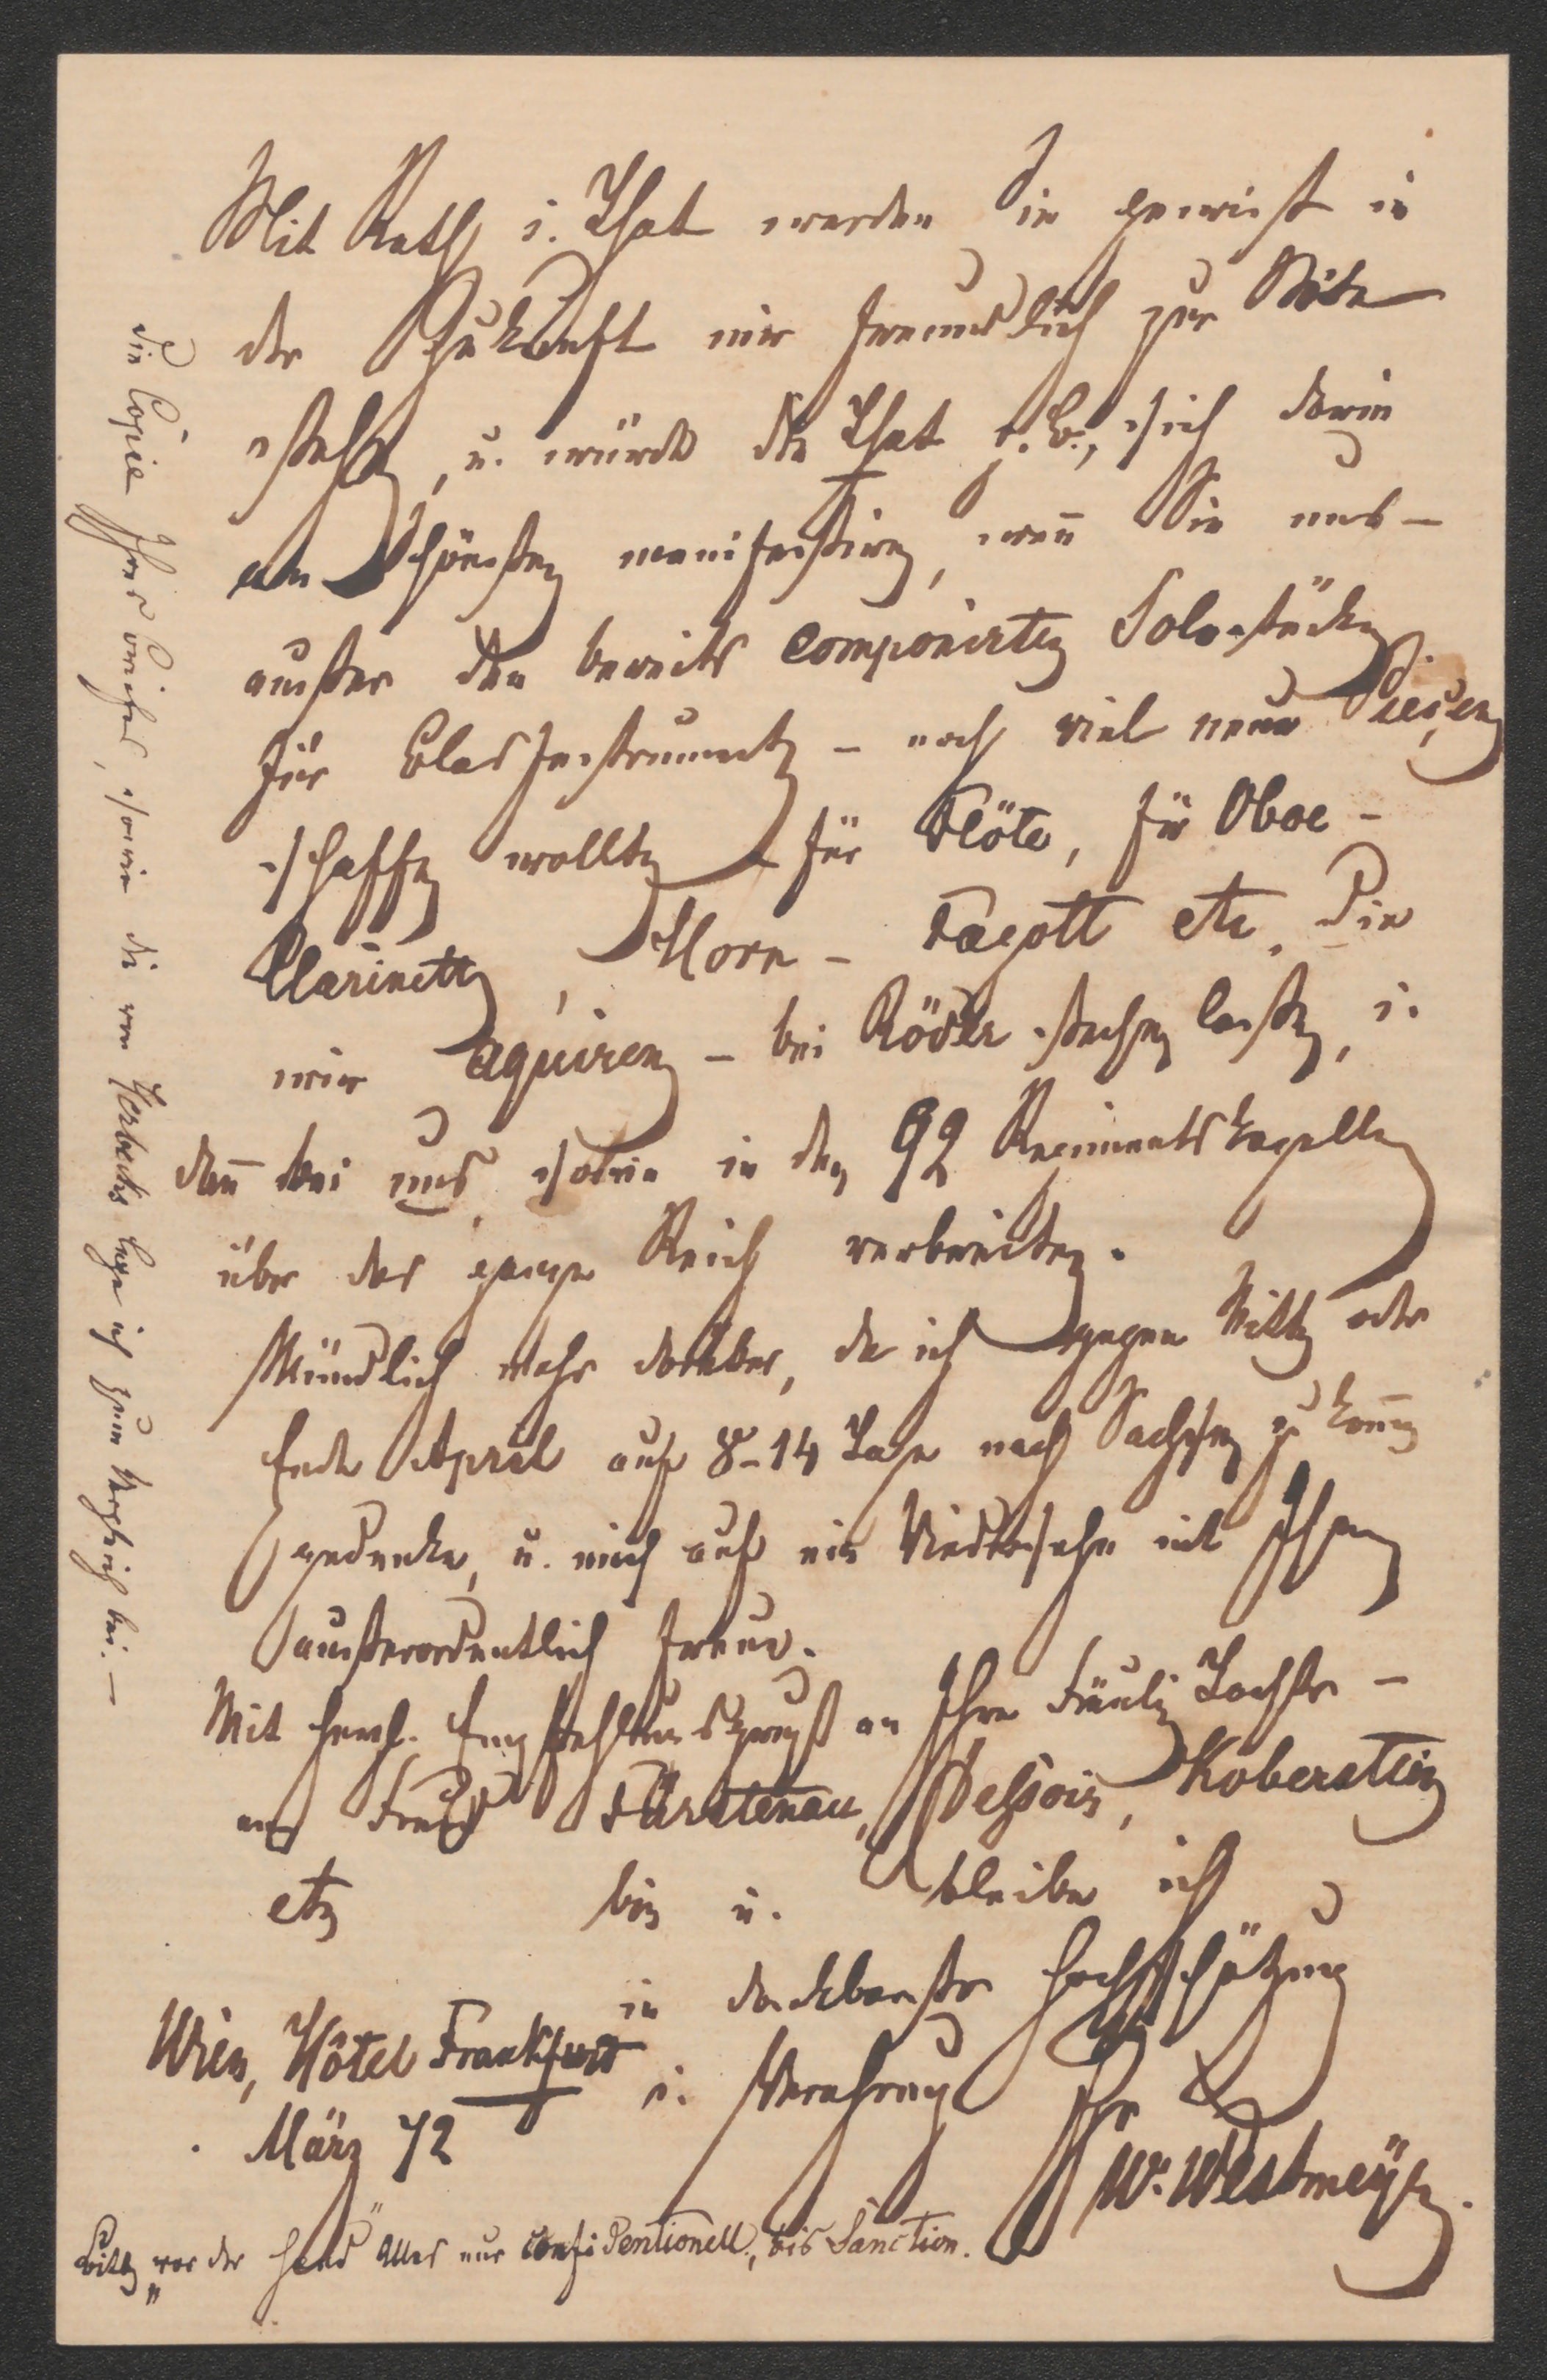 Mit Rath u. That werden Sie gewiß in
der Zukunft mir freundlich zur Seite
stehen, u. würde die That z. B., sich darin
am Schönsten manifestiren, wenn Sie uns –
außer den bereits componirten Solostücken
für Blasinstrumente – noch viel neue Pieçen
schaffen wollten – für Flöte, für Oboe –
Clarinette, Horn – Fagott etc. Die
wir aquiren – bei Röder stechen lassen, u.
dann bei uns, sowie in den 92 Regimentskapellen
über das ganze Reich verbreiten.
Mündlich mehr darüber, da ich gegen Mitte oder
Ende April auf 8–14 Tage nach Sachsen zu kommen
gedenke, u. mich auf ein Wiedersehn mit Ihnen
außerordentlich freue.
Mit herzl. Empfehlungsgruß an Ihre Fräulein Tochter –
an Freund Fürstenau, Dessoir, Koberstein
etc bin u. bleibe ich
in dankbarster Hochschätzung
u. Verehrung Ihr
W. Westmeyer.
Wien, Hôtel Frankfurt
März 72
Bitte „vor der Hand" Alles nur confidentionell, bis Sanction.
die Copie Ihres Briefes, sowie die von Herbecks lege ich zum Vergleich bei. –